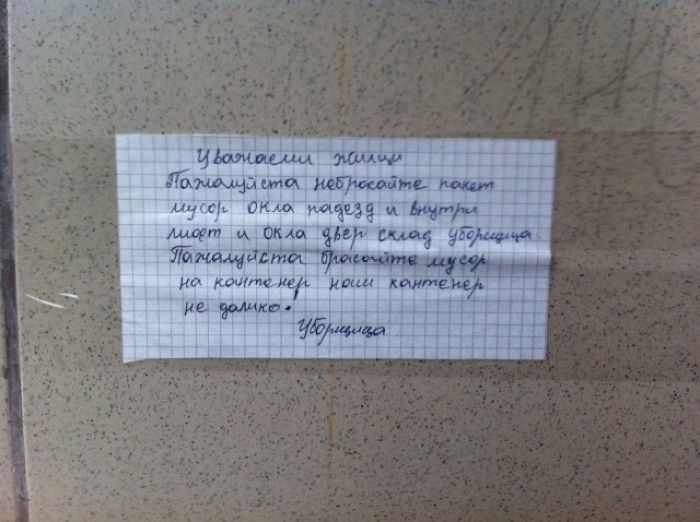 Уважаеми жилци
Пажалуйста небросайте пакет
мусор окла падезд и внутри
лифт и окла двер склад уборщица.
Пажалуйста брасайте мусор
на кантенер наш кантенер
не далико.
Уборщица.